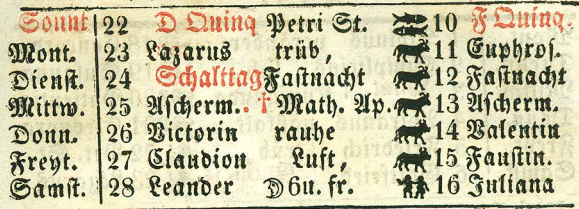 Sonnt 22 D Quinq Petri St. 10 F Quinq.
Mont. 23 Lazarus trüb, 11 Euphros.
Dienst. 24 Schalttag Fastnacht 12 Fastnacht
Mittw. 25 Ascherm. † Math. Ap. 13 Ascherm.
Donn. 26 Victorin rauhe 14 Valentin
Freyt. 27 Claudion Luft, 15 Faustin.
Samst. 28 Leander 6u. fr. 16 Juliana